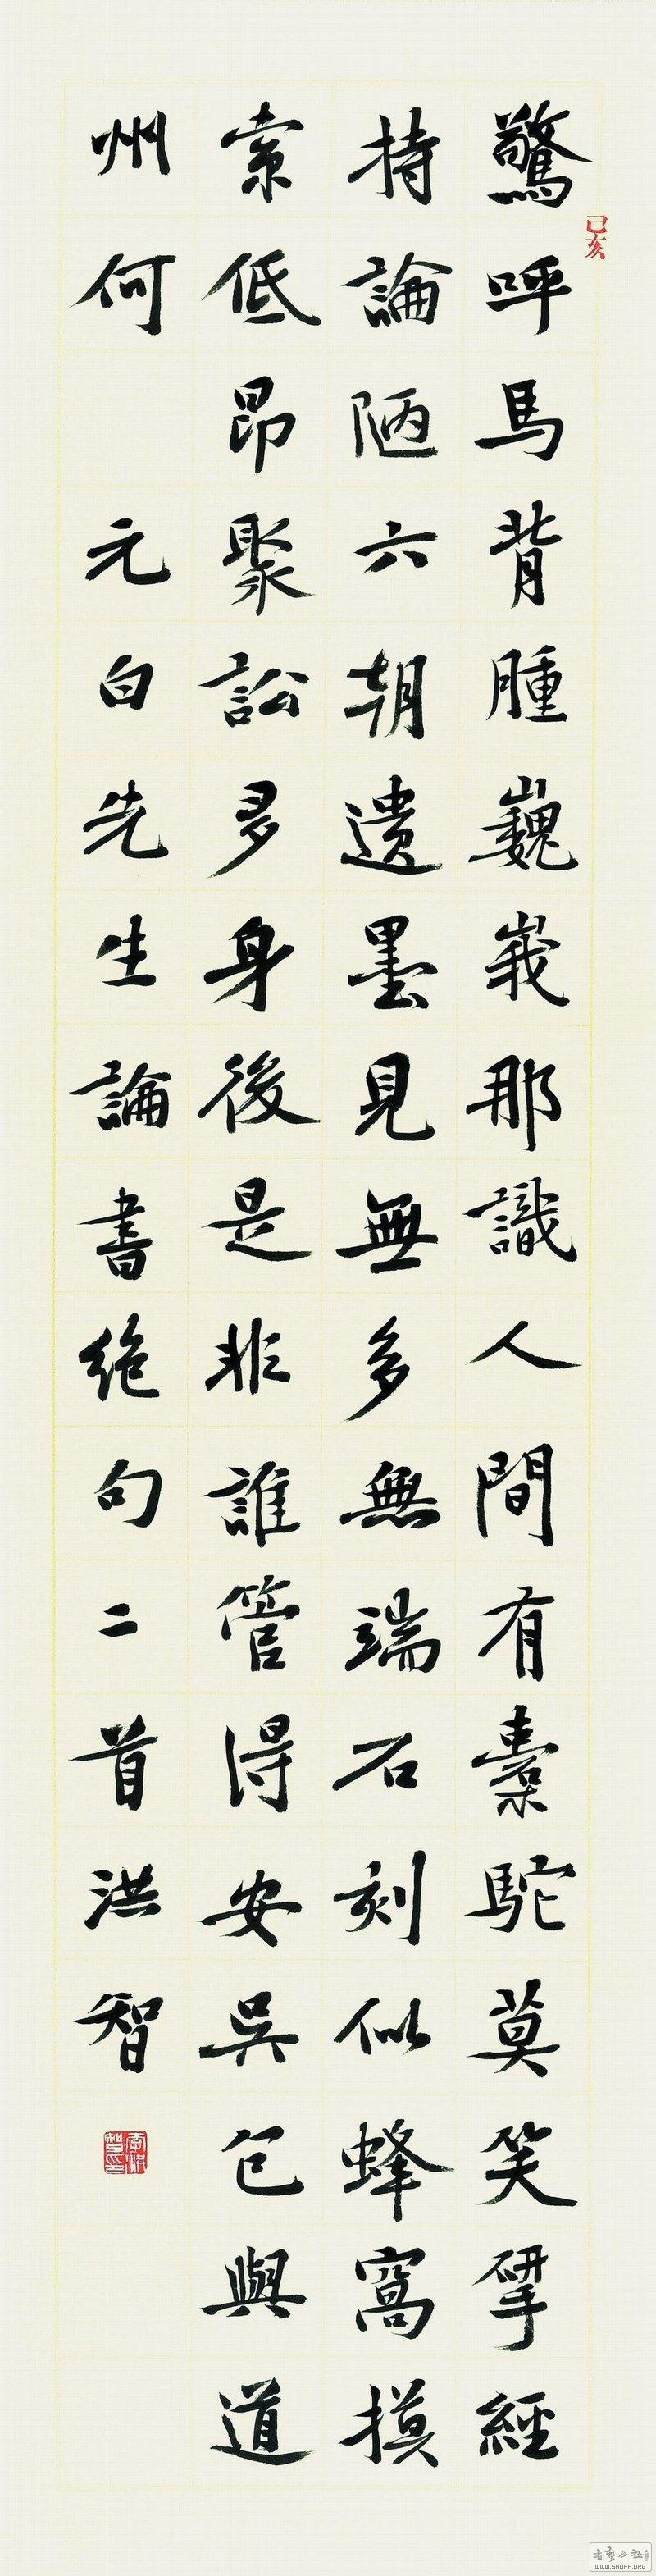 驚呼馬背腫巍峩那識人間有橐駝莫笑揅經
持論陋六朝遺墨見無多無端石刻似蜂窩摸
索低昂聚訟多身後是非誰管得安吳包與道
州何　元白先生論書絶句二首洪智
己亥
李洪智印
書藝公社
WWW.SHUFA.ORG